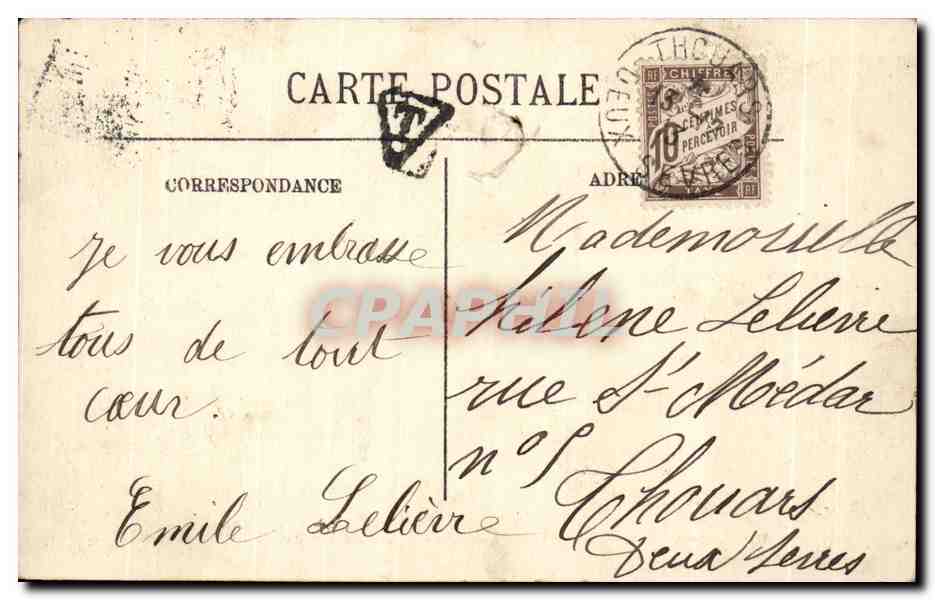 CARTE POSTALE
T
CORRESPONDANCE
ADRE
THOUARS
DEUX SEVRES
RF CHIFFRE
10 CENTIMES
A PERCEVOIR
TAXE RF
je vous embrasse
tous de tout
cœur.
Emile Lelièvre
Mademoiselle
Hélène Lelièvre
rue St Médar
n° 5
Thouars
Deux Sevres
CPAPHIL